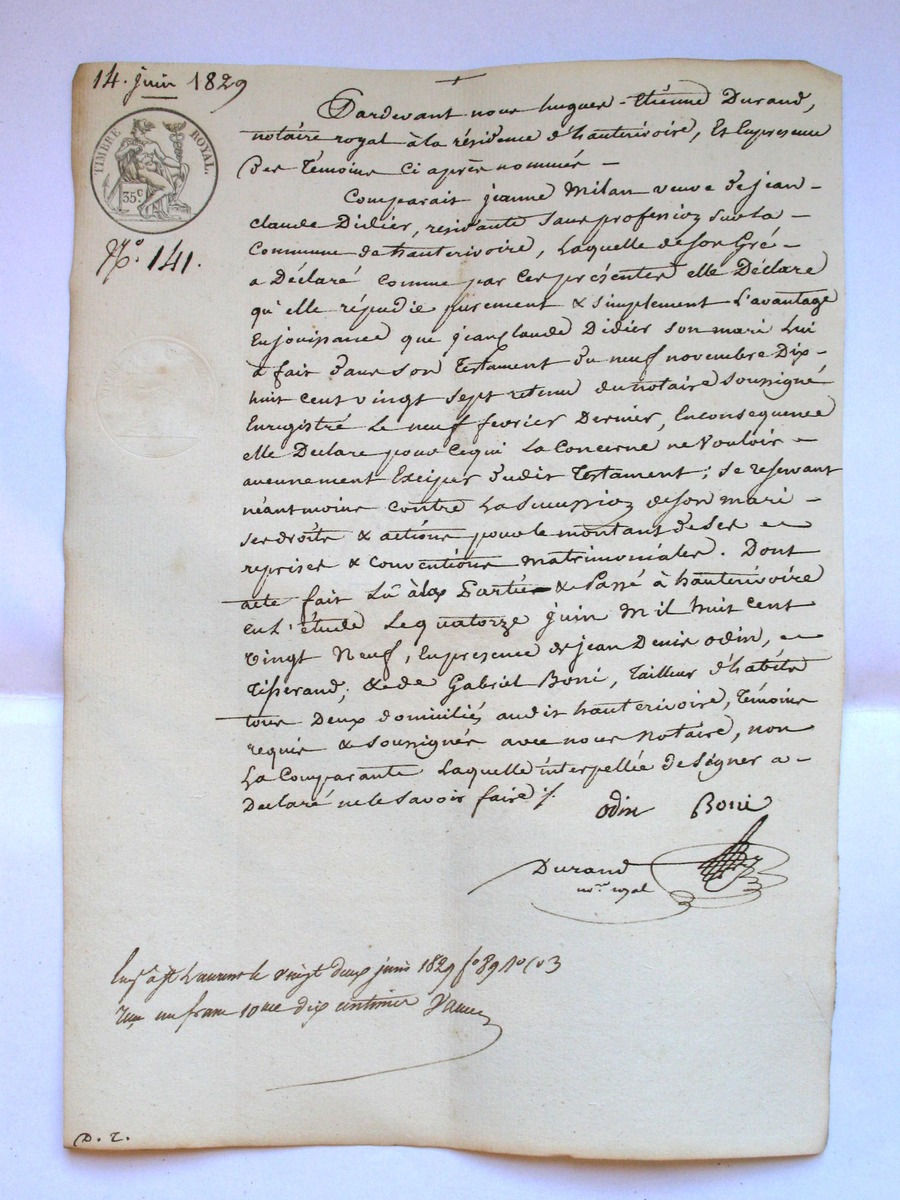 14. juin 1829
TIMBRE ROYAL.
35 c
N.º 141.
Pardevant nous hugues-Etiénne Durand,
notaire royal à la résidence d'hauterivoire, Et En presence
des témoins ci après nommés -
Comparait jeanne Milan veuve de jean-
claude Didier, résidante sans profession sur la -
Commune de hauterivoire, Laquelle de son Gré -
a Déclaré comme par Ces présentes elle Déclare
qu'elle répudie purement & simplement L'avantage
En jouissance que jean claude Didier son mari Lui
à fait dans son Testament du neuf novembre Dix-
huit cent vingt sept retenu du notaire soussigné
Enregistré Le neuf février Dernier, En consequence
elle Declare pour Ce qui La Concerne ne Vouloir -
aucunement Exciper dudit Testament; se reservant
néantmoins contre La succession de son mari -
ses droits & actions pour le montant de ses -
reprises & conventions matrimoniales. Dont
acte fait Lû à la Partie & Passé à hauterivoire
En L'étude Le quatorze juin mil huit cent
vingt Neuf, En presence de jean Denis Odin, -
Tisserand; & de Gabriel Boni, Tailleur d'habits
tous Deux domiciliés audit hauterivoire, Témoins
requis & soussignés avec nous Notaire, non
La Comparante Laquelle interpellée de signer a -
Déclaré ne le savoir faire ./.
Odin Boni
Durand
no.re royal
Enr. à St Laurent le vingt deux juin 1829 fo 89 Ro C 3
Reçu un franc 10me dix centimes
D. T.